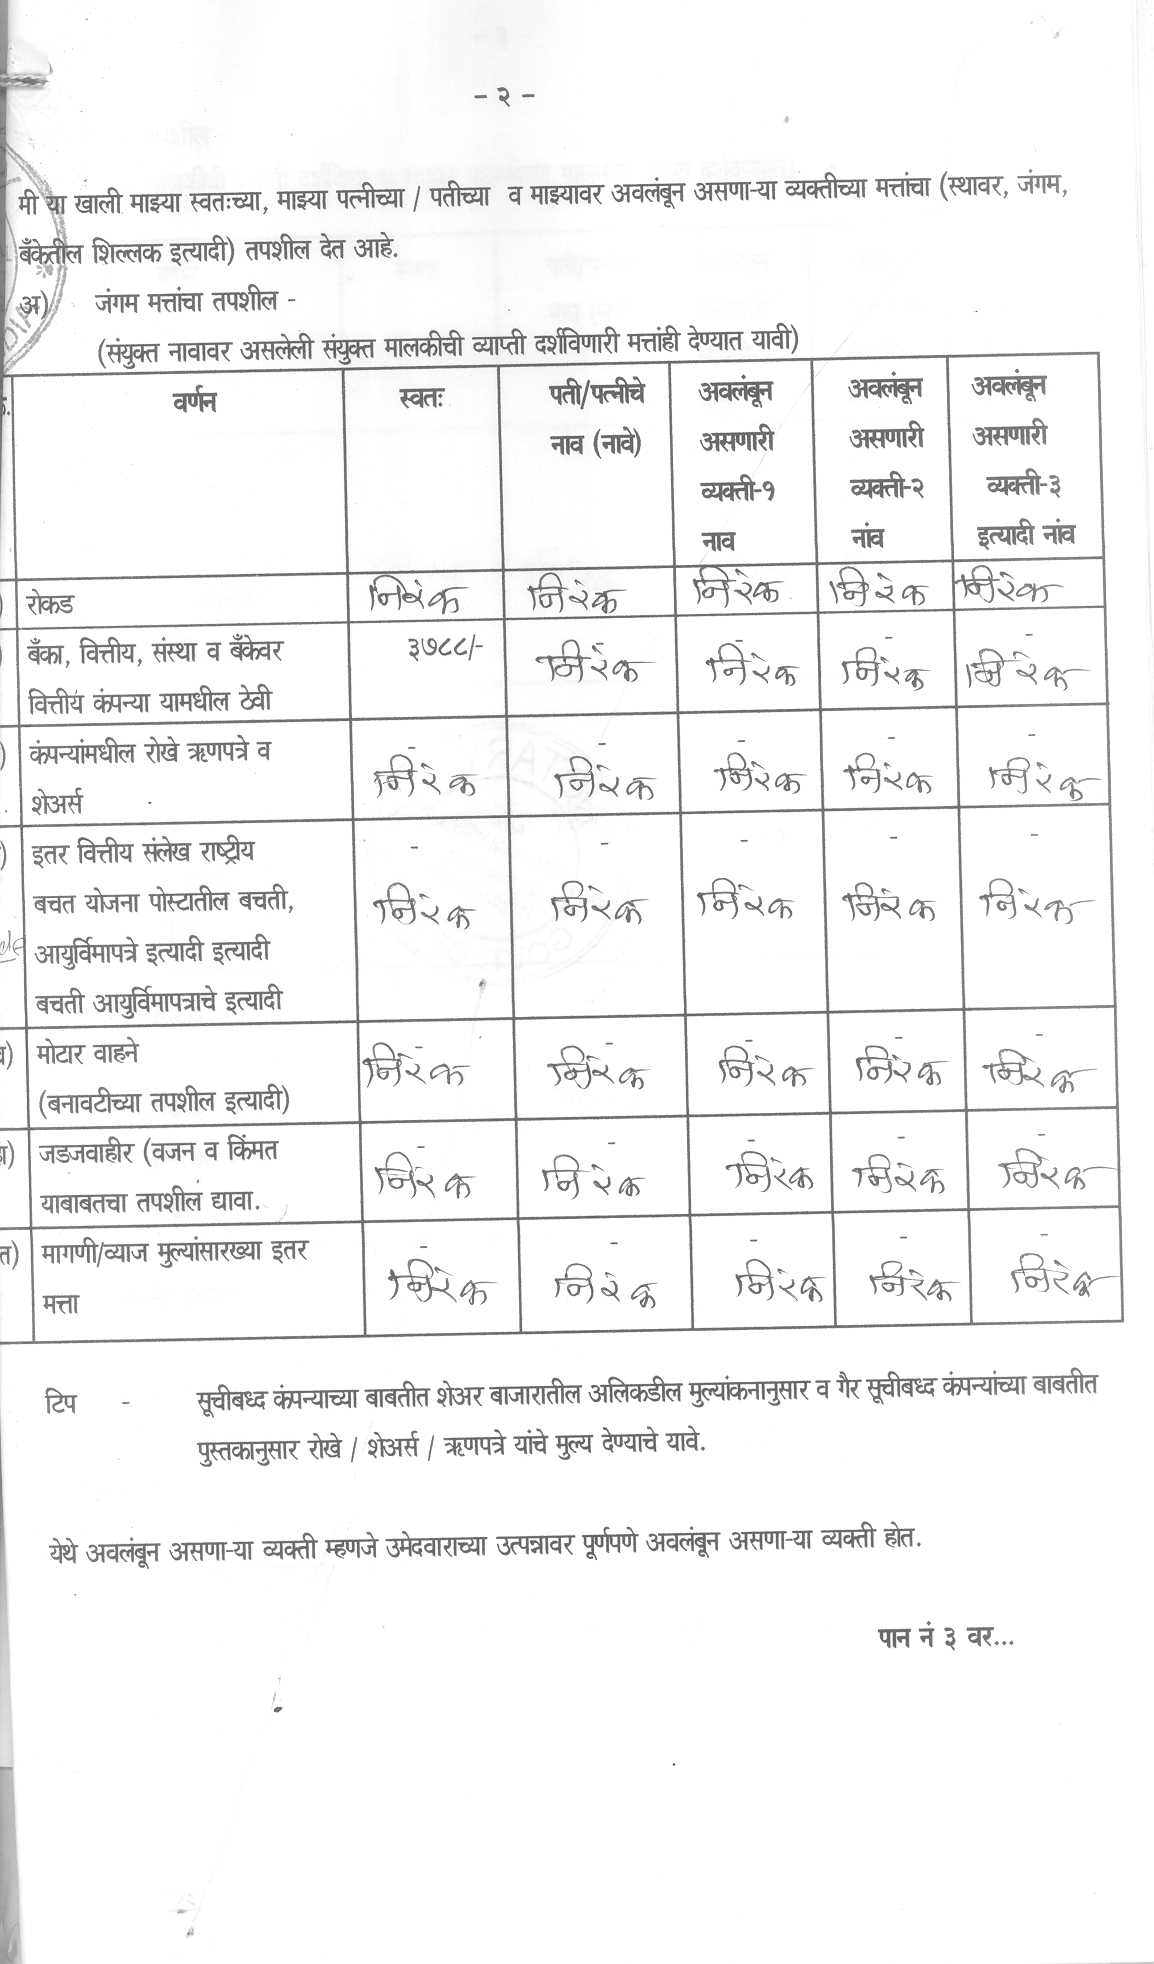 - २ -
मी या खाली माझ्या स्वतःच्या, माझ्या पत्नीच्या / पतीच्या व माझ्यावर अवलंबून असणा-या व्यक्तीच्या मत्तांचा (स्थावर, जंगम,
बँकेतील शिल्लक इत्यादी) तपशील देत आहे.
अ) जंगम मत्तांचा तपशील -
(संयुक्त नावावर असलेली संयुक्त मालकीची व्याप्ती दर्शविणारी मत्तांही देण्यात यावी)
वर्णन स्वतः पती/पत्नीचे अवलंबून अवलंबून अवलंबून
नाव (नावे) असणारी असणारी असणारी
व्यक्ती-१ व्यक्ती-२ व्यक्ती-३
नाव नांव इत्यादी नांव
रोकड निरंक निरंक निरंक निरंक निरंक
बँका, वित्तीय, संस्था व बँकेवर ३७८८/- - - -
वित्तीय कंपन्या यामधील ठेवी निरंक निरंक निरंक निरंक
कंपन्यांमधील रोखे ऋणपत्रे व - - - - -
शेअर्स निरंक निरंक निरंक निरंक निरंक
इतर वित्तीय संलेख राष्ट्रीय - - - - -
बचत योजना पोस्टातील बचती, निरंक निरंक निरंक निरंक निरंक
आयुर्विमापत्रे इत्यादी इत्यादी
बचती आयुर्विमापत्राचे इत्यादी
मोटार वाहने - - - - -
(बनावटीच्या तपशील इत्यादी) निरंक निरंक निरंक निरंक निरंक
जडजवाहीर (वजन व किंमत - - - - -
याबाबतचा तपशील द्यावा. निरंक निरंक निरंक निरंक निरंक
त) मागणी/व्याज मुल्यांसारख्या इतर - - - - -
मत्ता निरंक निरंक निरंक निरंक निरंक
टिप - सूचीबध्द कंपन्याच्या बाबतीत शेअर बाजारातील अलिकडील मुल्यांकनानुसार व गैर सूचीबध्द कंपन्यांच्या बाबतीत
पुस्तकानुसार रोखे / शेअर्स / ऋणपत्रे यांचे मुल्य देण्याचे यावे.
येथे अवलंबून असणा-या व्यक्ती म्हणजे उमेदवाराच्या उत्पन्नावर पूर्णपणे अवलंबून असणा-या व्यक्ती होत.
पान नं ३ वर...